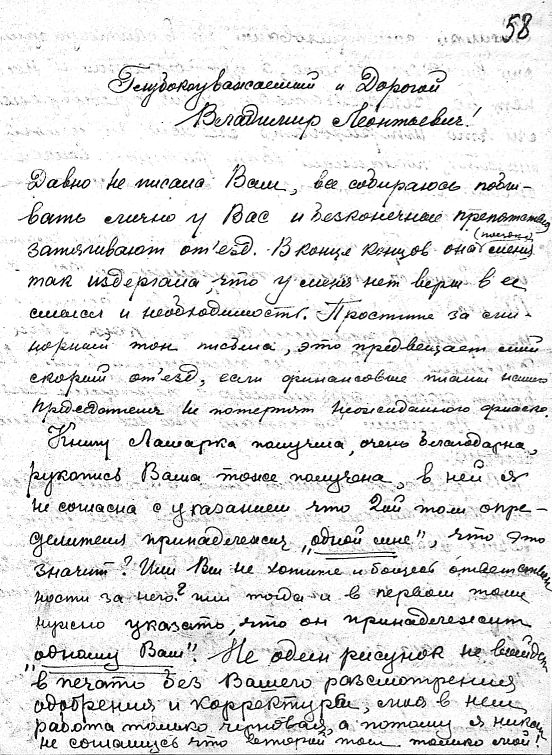 58
Глубокоуважаемый и Дорогой
Владимир Леонтьевич!
Давно не писала Вам, все собираюсь побы-
вать лично у Вас и безконечные препятствия
затягивают от'езд. В конце концов она (поездка) меня
так издергала, что у меня нет веры в ее
смысл и необходимость. Простите за ми-
норный тон письма, это предвещает мой
скорый от'езд, если финансовые планы нашего
председателя не потерпят неожиданного фиаско.
Книгу Ламарка получила, очень благодарна,
рукопись Ваша тоже получена, в ней я
не согласна с указанием что 2ой том опре-
делителя принадлежит "одной мне", что это
значит? Или Вы не хотите и боитесь ответствен
ности за него? или тогда и в первом томе
нужно указать, что он принадлежит
"одному Вам". Не один рисунок не выйдет
в печать без Вашего рассмотрения
одобрения и корректуры, моя в нем
работа только черновая, а потому я никак
не соглашусь что второй том только мой!